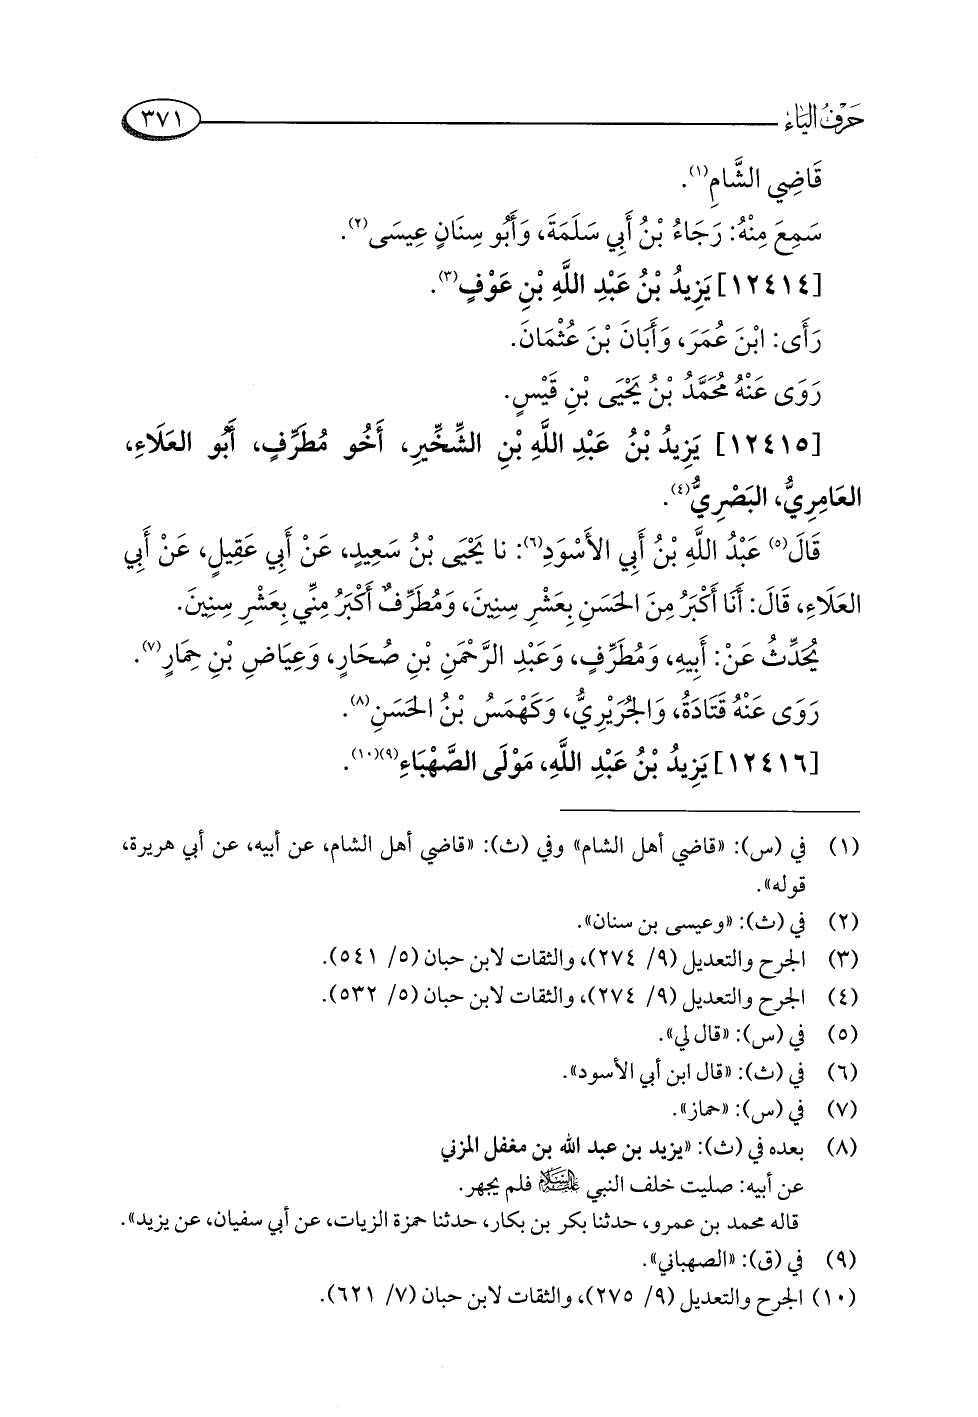 حَرْفُ اليَاءِ ٣٧١
قَاضِي الشَّامِ(١).
سَمِعَ مِنْهُ: رَجَاءُ بْنُ أَبِي سَلَمَةَ، وَأَبُو سِنَانٍ عِيسَى(٢).
[١٢٤١٤] يَزِيدُ بْنُ عَبْدِ اللَّهِ بْنِ عَوْفٍ(٣).
رَأَى: ابْنَ عُمَرَ، وَأَبَانَ بْنَ عُثْمَانَ.
رَوَى عَنْهُ مُحَمَّدُ بْنُ يَحْيَى بْنِ قَيْسٍ.
[١٢٤١٥] يَزِيدُ بْنُ عَبْدِ اللَّهِ بْنِ الشِّخِّيرِ، أَخُو مُطَرِّفٍ، أَبُو العَلَاءِ،
العَامِرِيُّ، البَصْرِيُّ(٤).
قَالَ(٥) عَبْدُ اللَّهِ بْنُ أَبِي الأَسْوَدِ(٦): نا يَحْيَى بْنُ سَعِيدٍ، عَنْ أَبِي عَقِيلٍ، عَنْ أَبِي
العَلَاءِ، قَالَ: أَنَا أَكْبَرُ مِنَ الحَسَنِ بِعَشْرِ سِنِينَ، وَمُطَرِّفٌ أَكْبَرُ مِنِّي بِعَشْرِ سِنِينَ.
يُحَدِّثُ عَنْ: أَبِيهِ، وَمُطَرِّفٍ، وَعَبْدِ الرَّحْمَنِ بْنِ صُحَارٍ، وَعِيَاضِ بْنِ حِمَارٍ(٧).
رَوَى عَنْهُ قَتَادَةُ، وَالجُرَيْرِيُّ، وَكَهْمَسُ بْنُ الحَسَنِ(٨).
[١٢٤١٦] يَزِيدُ بْنُ عَبْدِ اللَّهِ، مَوْلَى الصَّهْبَاءِ(٩)(١٠).
(١) في (س): «قاضي أهل الشام» وفي (ث): «قاضي أهل الشام، عن أبيه، عن أبي هريرة،
قوله».
(٢) في (ث): «وعيسى بن سنان».
(٣) الجرح والتعديل (٩/ ٢٧٤)، والثقات لابن حبان (٥/ ٥٤١).
(٤) الجرح والتعديل (٩/ ٢٧٤)، والثقات لابن حبان (٥/ ٥٣٢).
(٥) في (س): «قال لي».
(٦) في (ث): «قال ابن أبي الأسود».
(٧) في (س): «حماز».
(٨) بعده في (ث): «يزيد بن عبد الله بن مغفل المزني
عن أبيه: صليت خلف النبي ﷺ فلم يجهر.
قاله محمد بن عمرو، حدثنا بكر بن بكار، حدثنا حمزة الزيات، عن أبي سفيان، عن يزيد».
(٩) في (ق): «الصهباني».
(١٠) الجرح والتعديل (٩/ ٢٧٥)، والثقات لابن حبان (٧/ ٦٢١).